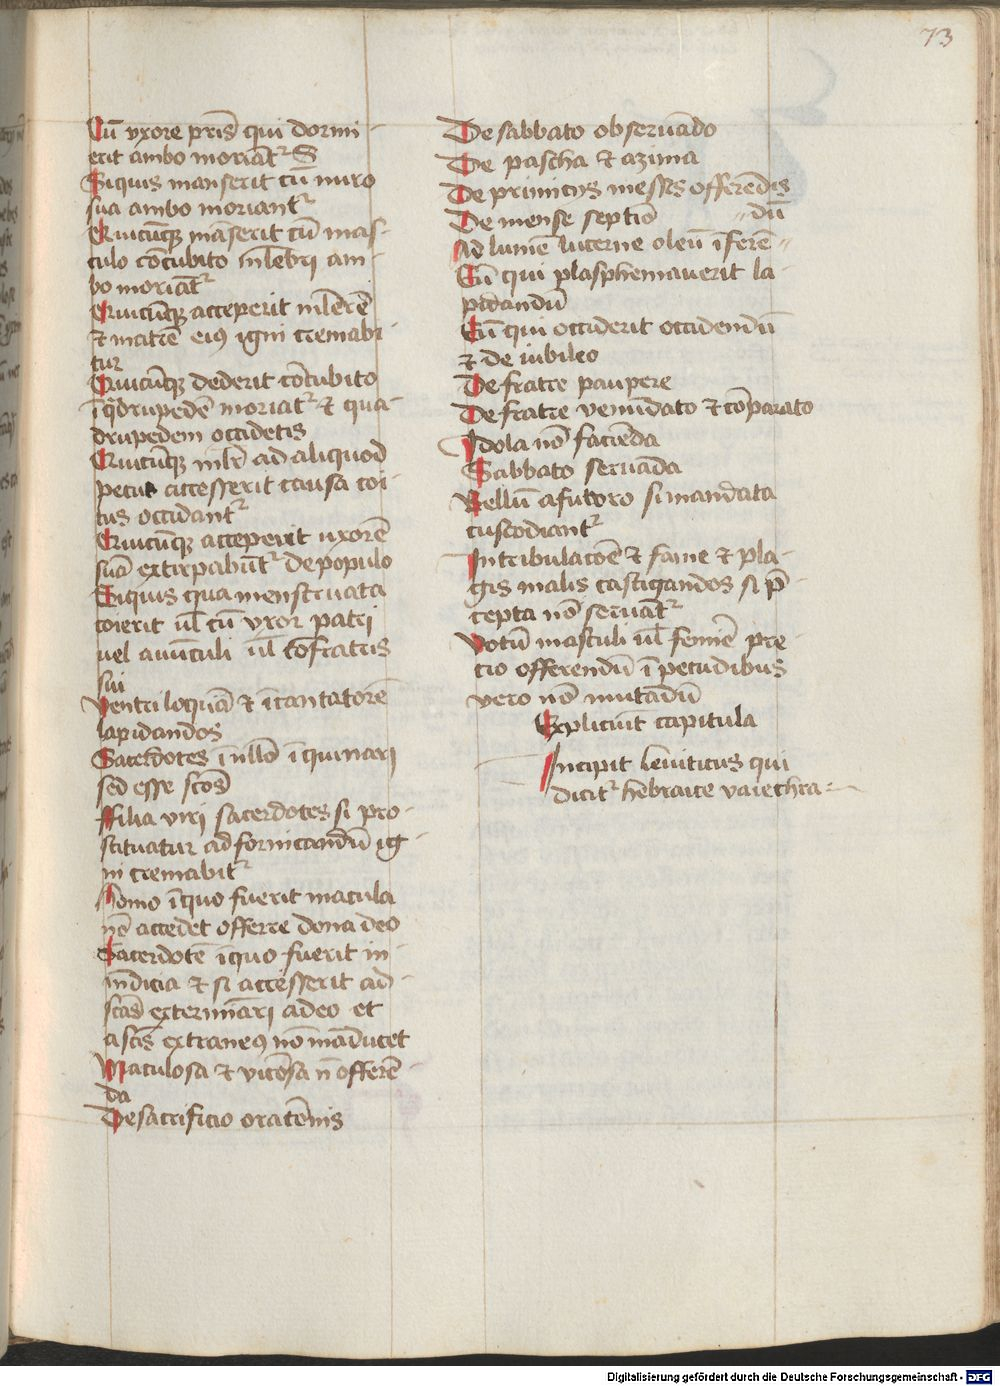 73
Cū vxore pris̄ qui dormi
erit ambo moriāt᷑ S
Siquis manserit cū nuro
sua ambo moriant᷑
Quicūqꝫ māserit cū mas
culo cōcubito ml̄ebri am
bo moriāt᷑
Quicūqꝫ acceperit ml̄ierē
⁊ matrē eiꝰ igni cremabi
tur
Quicūqꝫ dederit cōcubito
ī q̄drupedē moriat᷑ ⁊ qua
drupedem occidetis
Quicūqꝫ ml̄r ad aliquod
pecus accesserit causa coi
tus occidant᷑
Quicūqꝫ acceperit uxorē
suā extirpabūt᷑ de populo
Siquis qua menstruata
coierit ul̄ cū vxor patri
uel auūculi ul̄
sui
Ventriloquā ⁊ īcantatorē
lapidandos
Sacerdotes ī nullo īquinari
sed esse scōs
Filia viri sacerdotes si pro
stituatur ad fornicandū ig
ni cremabit᷑
Homo īquo fuerit macula
nō accedet offerre dona deo
Sacerdotē īquo fuerit in
mūdicia ⁊ si accesserit ad
scās extermīari a deo et
a scīs extraneꝰ nō māducet
Maculosa ⁊ viciōsa n̄ offerē
da
De sacrificio
De sabbato obseruādo
De pascha ⁊ azima
De primicijs messis offerēdis
De mense septīo dū
Ad lumē lucerne oleū īferē
Eū qui plasphemauerit la
pidandū
Eū qui occiderit occidendū
⁊ de iubileo
De fratre paupere
De fratre venūdato ⁊ cōparato
Ydola nō faciēda
Sabbato seruāda
Bellū afuturo si mandata
cuscodiant᷑
In tribulacōe ⁊ fame ⁊ pla
gis malis castigandos si p̄
cepta nō seruāt᷑
Votū masculi ul̄ femīe pre
cio offerendū ī pecudibus
vero nō mutādū
Expliciūt capitula
Incipit leuiticus qui
dicit᷑ hebraice vaiechra
Digitalisierung gefördert durch die Deutsche Forschungsgemeinschaft - DFG